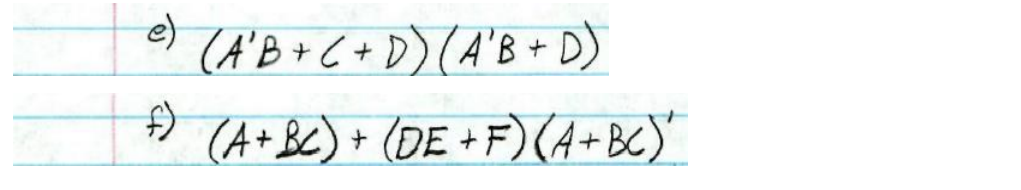 e) (A'B + C + D)(A'B + D)
f) (A + BC) + (DE + F)(A + BC)'